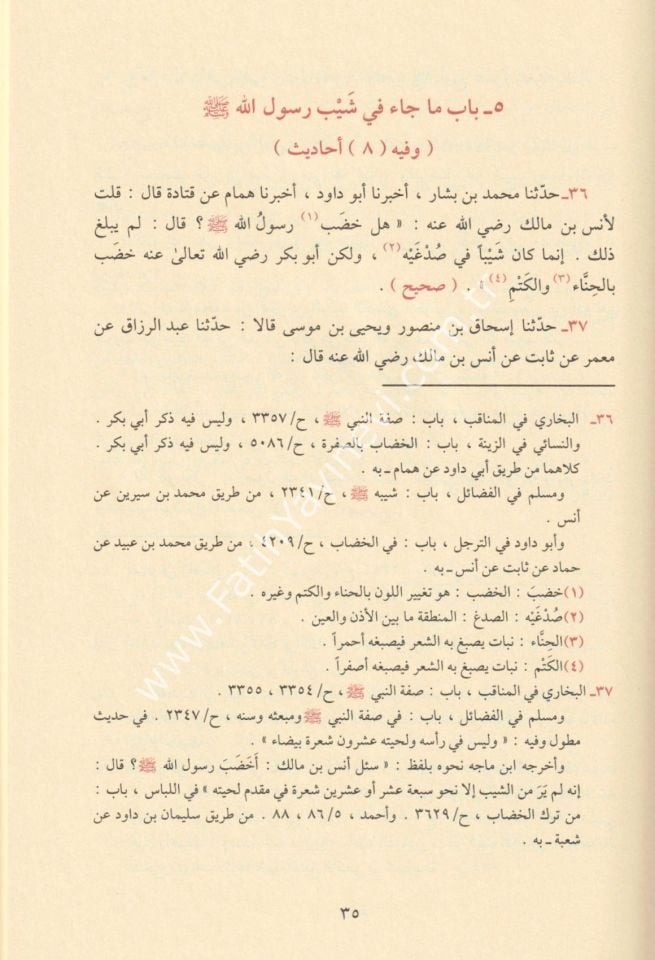 ٥ـ باب ما جاء في شَيْب رسول الله ﷺ
( وفيه ( ٨ ) أحاديث )
٣٦ـ حدّثنا محمد بن بشار ، أخبرنا أبو داود ، أخبرنا همام عن قتادة قال : قلت
لأنس بن مالك رضي الله عنه : « هل خضَب(١) رسولُ الله ﷺ ؟ قال : لم يبلغ
ذلك . إنما كان شَيْباً في صُدْغَيْه(٢) ، ولكن أبو بكر رضي الله تعالىٰ عنه خضَب
بالحِنَّاء(٣) والكَتْمِ(٤) » . ( صحيح ) .
٣٧ـ حدّثنا إسحاق بن منصور ويحيى بن موسى قالا : حدّثنا عبد الرزاق عن
معمر عن ثابت عن أنس بن مالك رضي الله عنه قال :
٣٦ـ البخاري في المناقب ، باب : صفة النبي ﷺ ، ح/ ٣٣٥٧ ، وليس فيه ذكر أبي بكر .
والنسائي في الزينة ، باب : الخضاب بالصفرة ، ح/ ٥٠٨٦ ، وليس فيه ذكر أبي بكر .
كلاهما من طريق أبي داود عن همام ـ به .
ومسلم في الفضائل ، باب : شيبه ﷺ ، ح/ ٢٣٤١ ، من طريق محمد بن سيرين عن
أنس .
وأبو داود في الترجل ، باب : في الخضاب ، ح/ ٤٢٠٩ ، من طريق محمد بن عبيد عن
حماد عن ثابت عن أنس ـ به .
(١) خضبَ : الخضب : هو تغيير اللون بالحناء والكتم وغيره .
(٢) صُدْغَيْه : الصدغ : المنطقة ما بين الأذن والعين .
(٣) الحِنَّاء : نبات يصبغ به الشعر فيصبغه أحمراً .
(٤) الكَتْم : نبات يصبغ به الشعر فيصبغه أصفراً .
٣٧ـ البخاري في المناقب ، باب : صفة النبي ﷺ ، ح/ ٣٣٥٤ ، ٣٣٥٥ .
ومسلم في الفضائل ، باب : في صفة النبي ﷺ ومبعثه وسنه ، ح/ ٢٣٤٧ . في حديث
مطول وفيه : « وليس في رأسه ولحيته عشرون شعرة بيضاء » .
وأخرجه ابن ماجه نحوه بلفظ : « سئل أنس بن مالك : أَخَضَبَ رسول الله ﷺ ؟ قال :
إنه لم يَرَ من الشيب إلا نحو سبعة عشر أو عشرين شعرة في مقدم لحيته » في اللباس ، باب :
من ترك الخضاب ، ح/ ٣٦٢٩ . وأحمد ، ٥/ ٨٦ ، ٨٨ . من طريق سليمان بن داود عن
شعبة ـ به .
٣٥
www.FatihYayinevi.com.tr